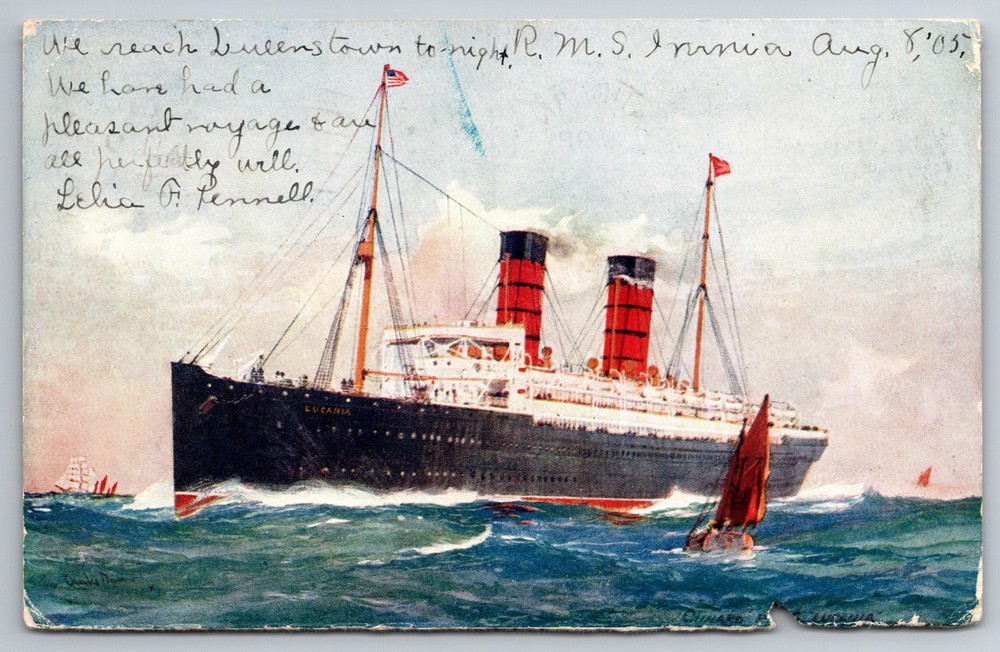 We reach Queenstown to-night, R. M. S. Ivernia Aug. 8, '05.
We have had a
pleasant voyage & are
all perfectly well.
Lelia F. Pennell.
LUCANIA
CUNARD R. LUCANIA